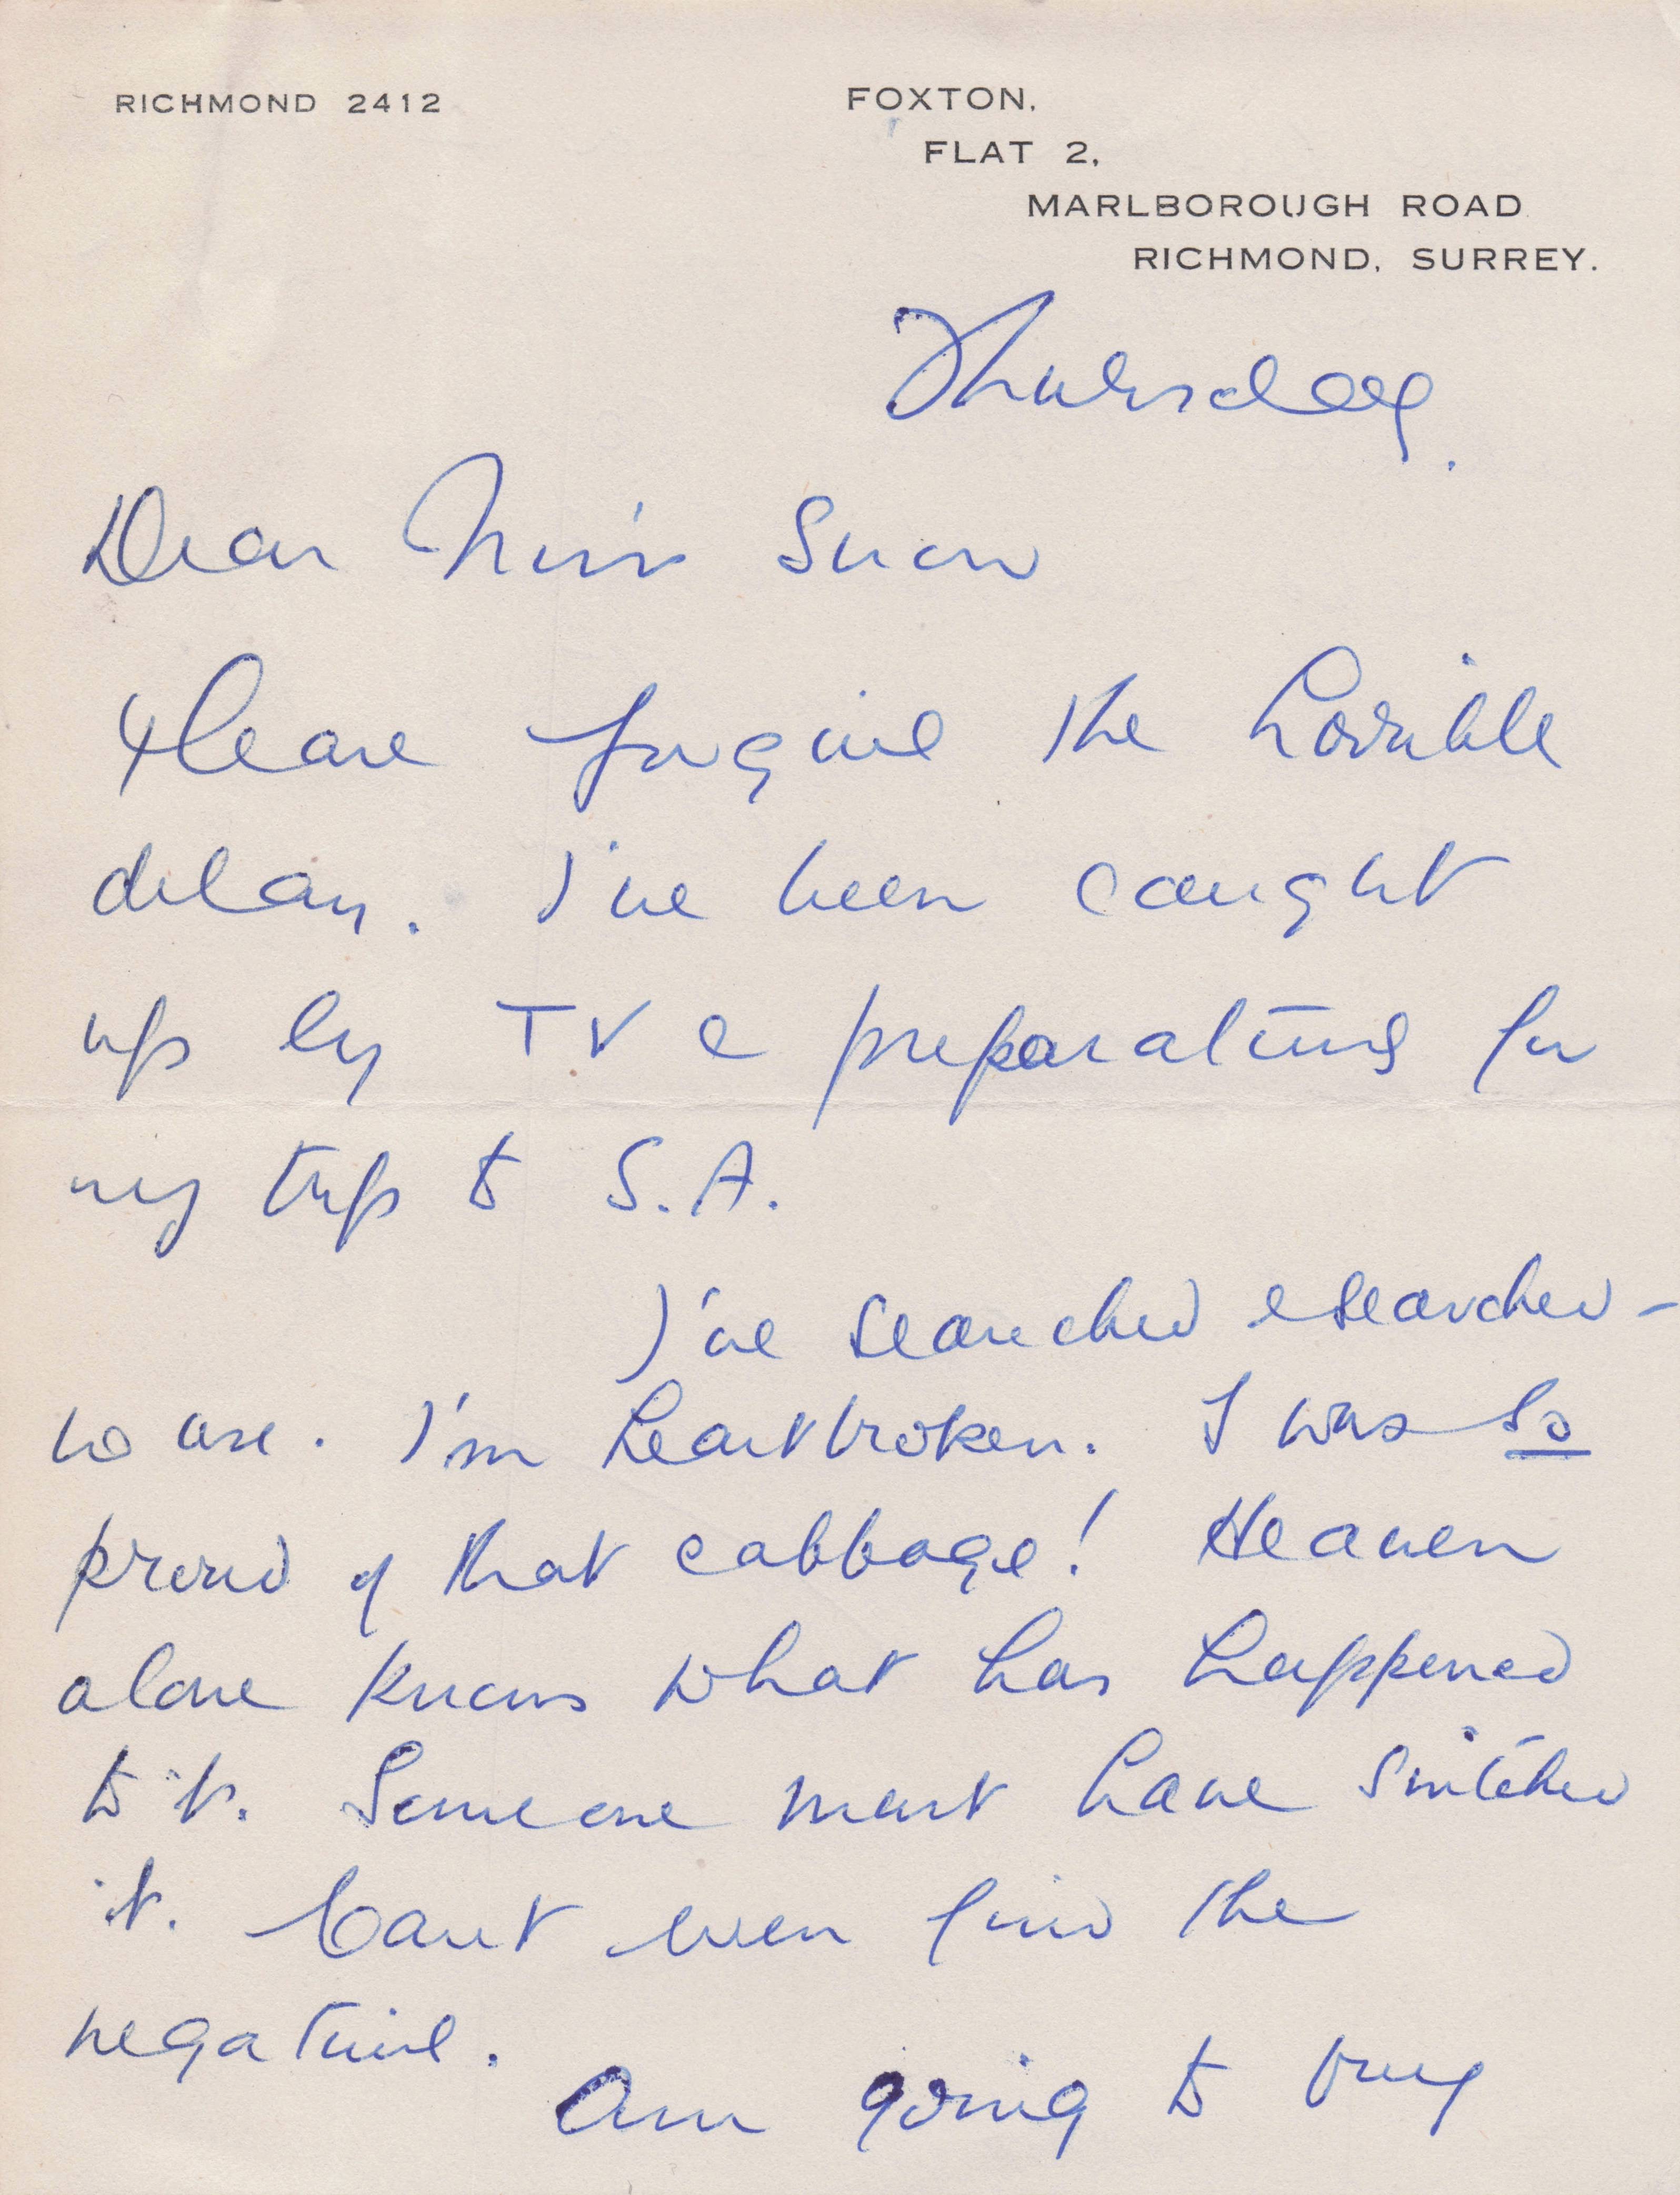 RICHMOND 2412
FOXTON,
FLAT 2,
MARLBOROUGH ROAD
RICHMOND, SURREY.
Thursday.
Dear Miss Snow
Please forgive the horrible
delay. I've been caught
up by TV & preparations for
my trip to S.A.
I've searched & searched -
no use. I'm heartbroken. I was so
proud of that cabbage! Heaven
alone knows what has happened
to it. Someone must have snitched
it. Can't even find the
negative.
Am going to